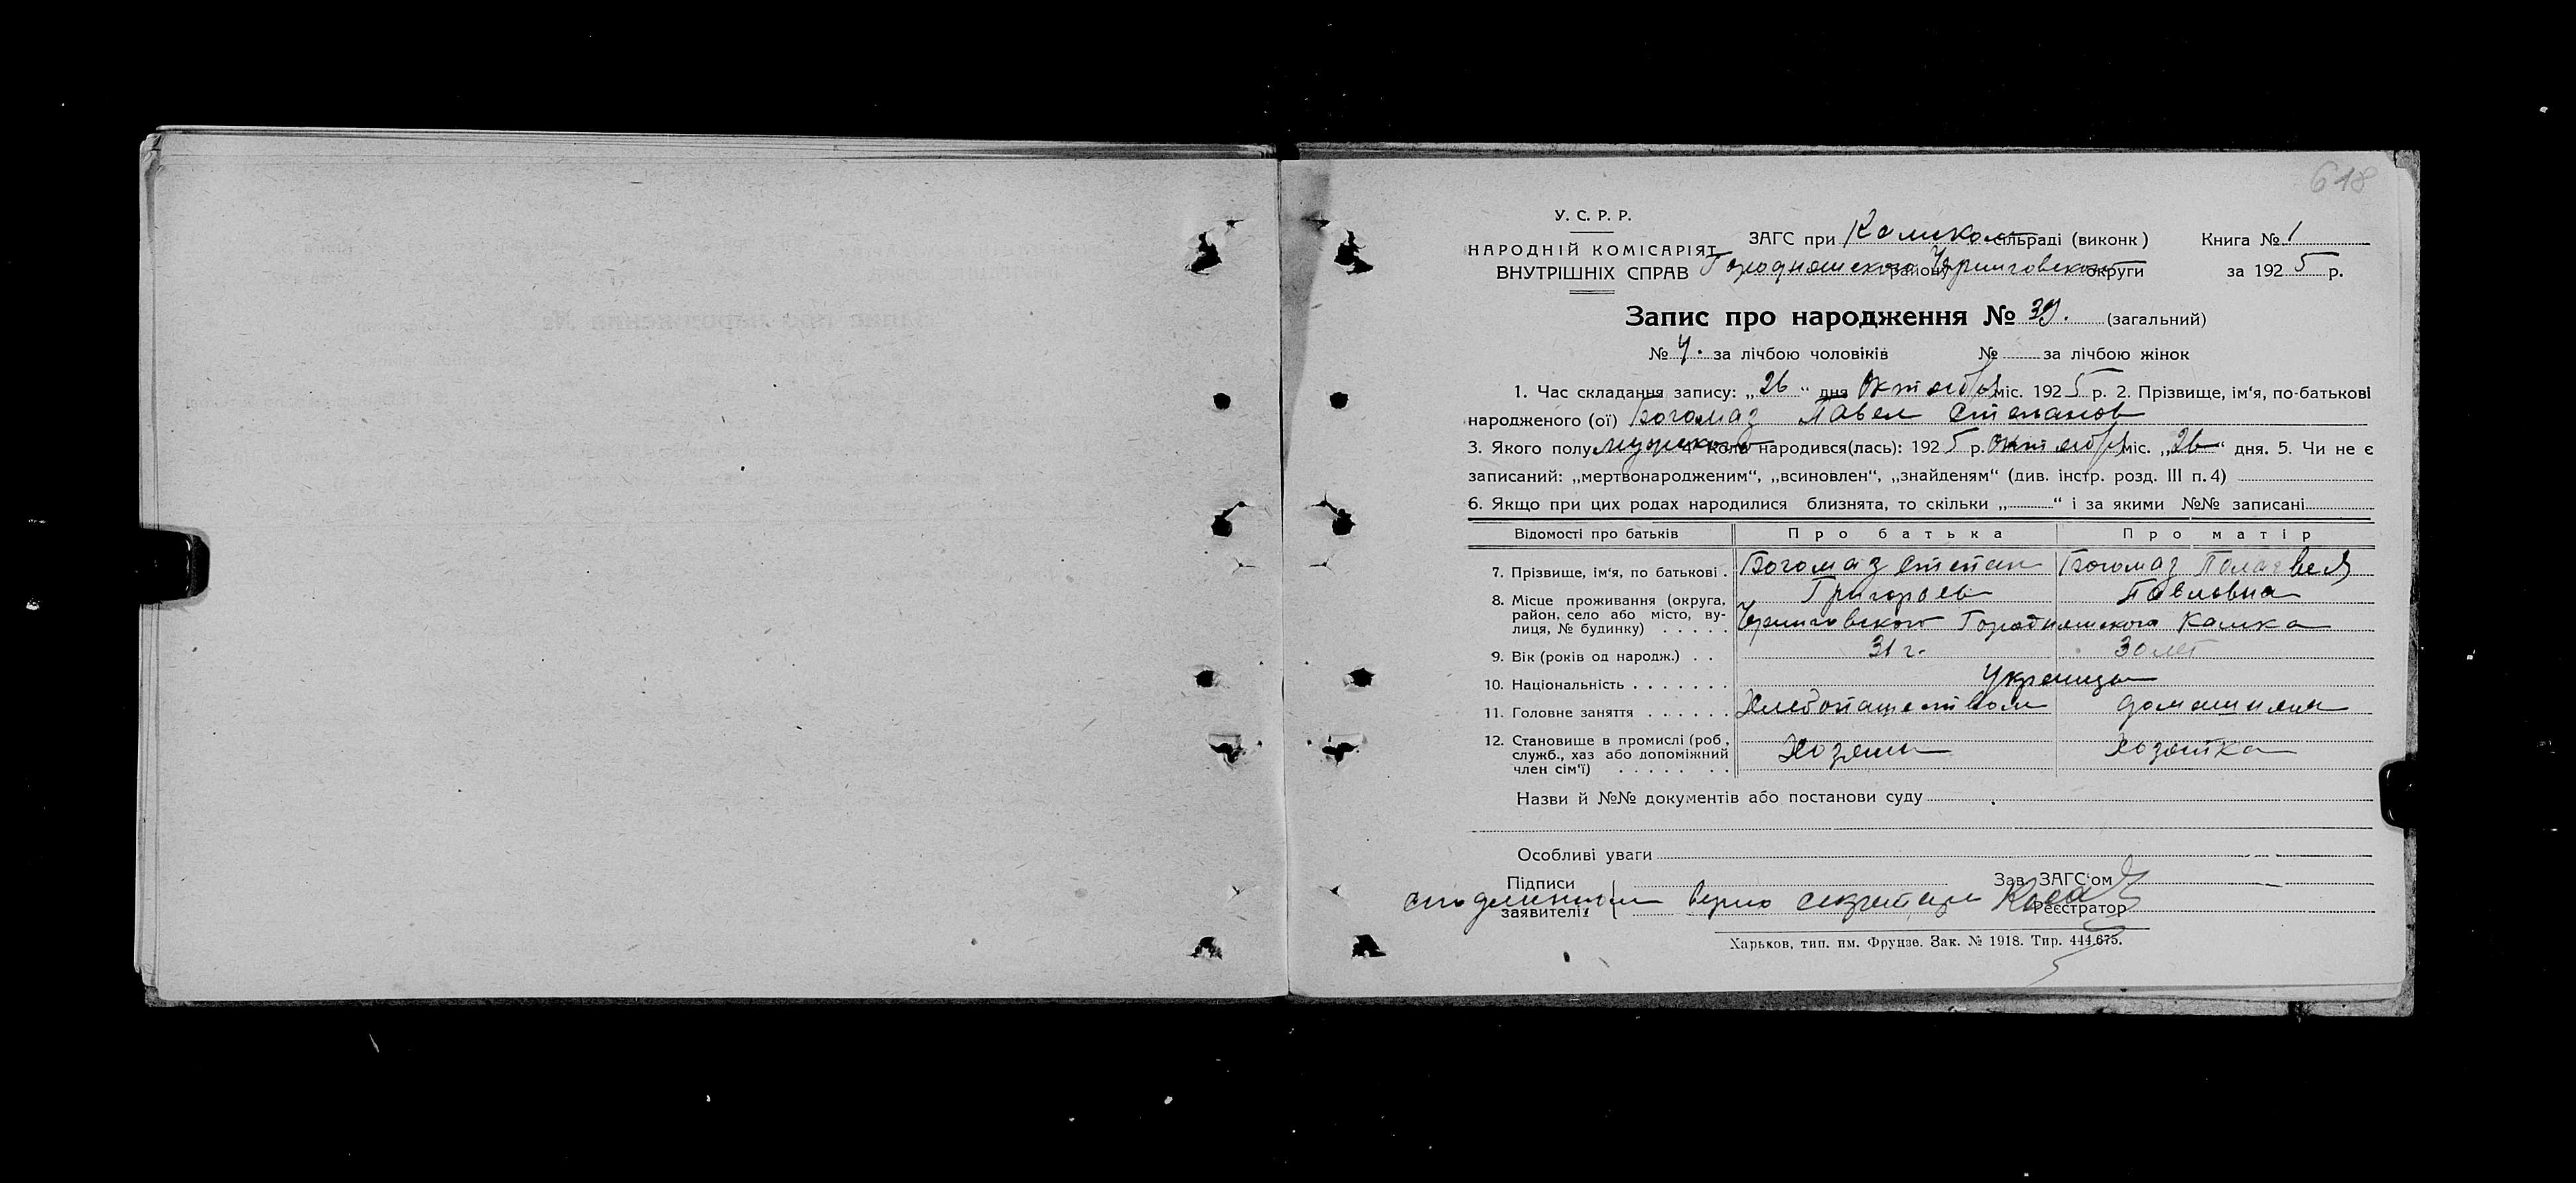 618
У. С. Р. Р.
НАРОДНІЙ КОМІСАРІЯТ
ВНУТРІШНІХ СПРАВ
ЗАГС при сільраді (виконк)
Книга № 1
Городнянского району Черниговского округи
за 1925 р.
Запис про народження № 39. (загальний)
№ 4. за лічбою чоловіків № за лічбою жінок
1. Час складання запису: „26“ дня октября міс. 1925 р. 2. Прізвище, ім‘я, по-батькові
народженого (ої) Богомаз Павел Степанов
3. Якого полу мужского 4. Коли народився(лась): 1925 р. октября міс. „26“ дня. 5. Чи не є
записаний: „мертвонародженим“, „всиновлен“, „знайденям“ (див. інстр. розд. III п. 4)
6. Якщо при цих родах народилися близнята, то скільки „ “ і за якими №№ записані
Відомості про батьків Про батька Про матір
7. Прізвище, ім‘я, по батькові . Богомаз Степан Богомаз
Григорьев Павловна
8. Місце проживання (округа, район, село або місто, вулиця, № будинку) . . . . . Черниговского Городнянского Камка
9. Вік (років од народж.) . . 31 г. 30 лет
10. Національність . . . . . . . Украинцы
11. Головне заняття . . . . . . Хлебопашеством домашняя
12. Становище в промислі (роб., служб., хаз або допоміжний член сім‘ї) . . . . . . . Хозяин Хозяйка
Назви й №№ документів або постанови суду
Особливі уваги
Підписи
заявителів
Зав. ЗАГС‘ом
С подлинным верно секретарь
Реєстратор
Харьков, тип. им. Фрунзе. Зак. № 1918. Тир. 444.675.